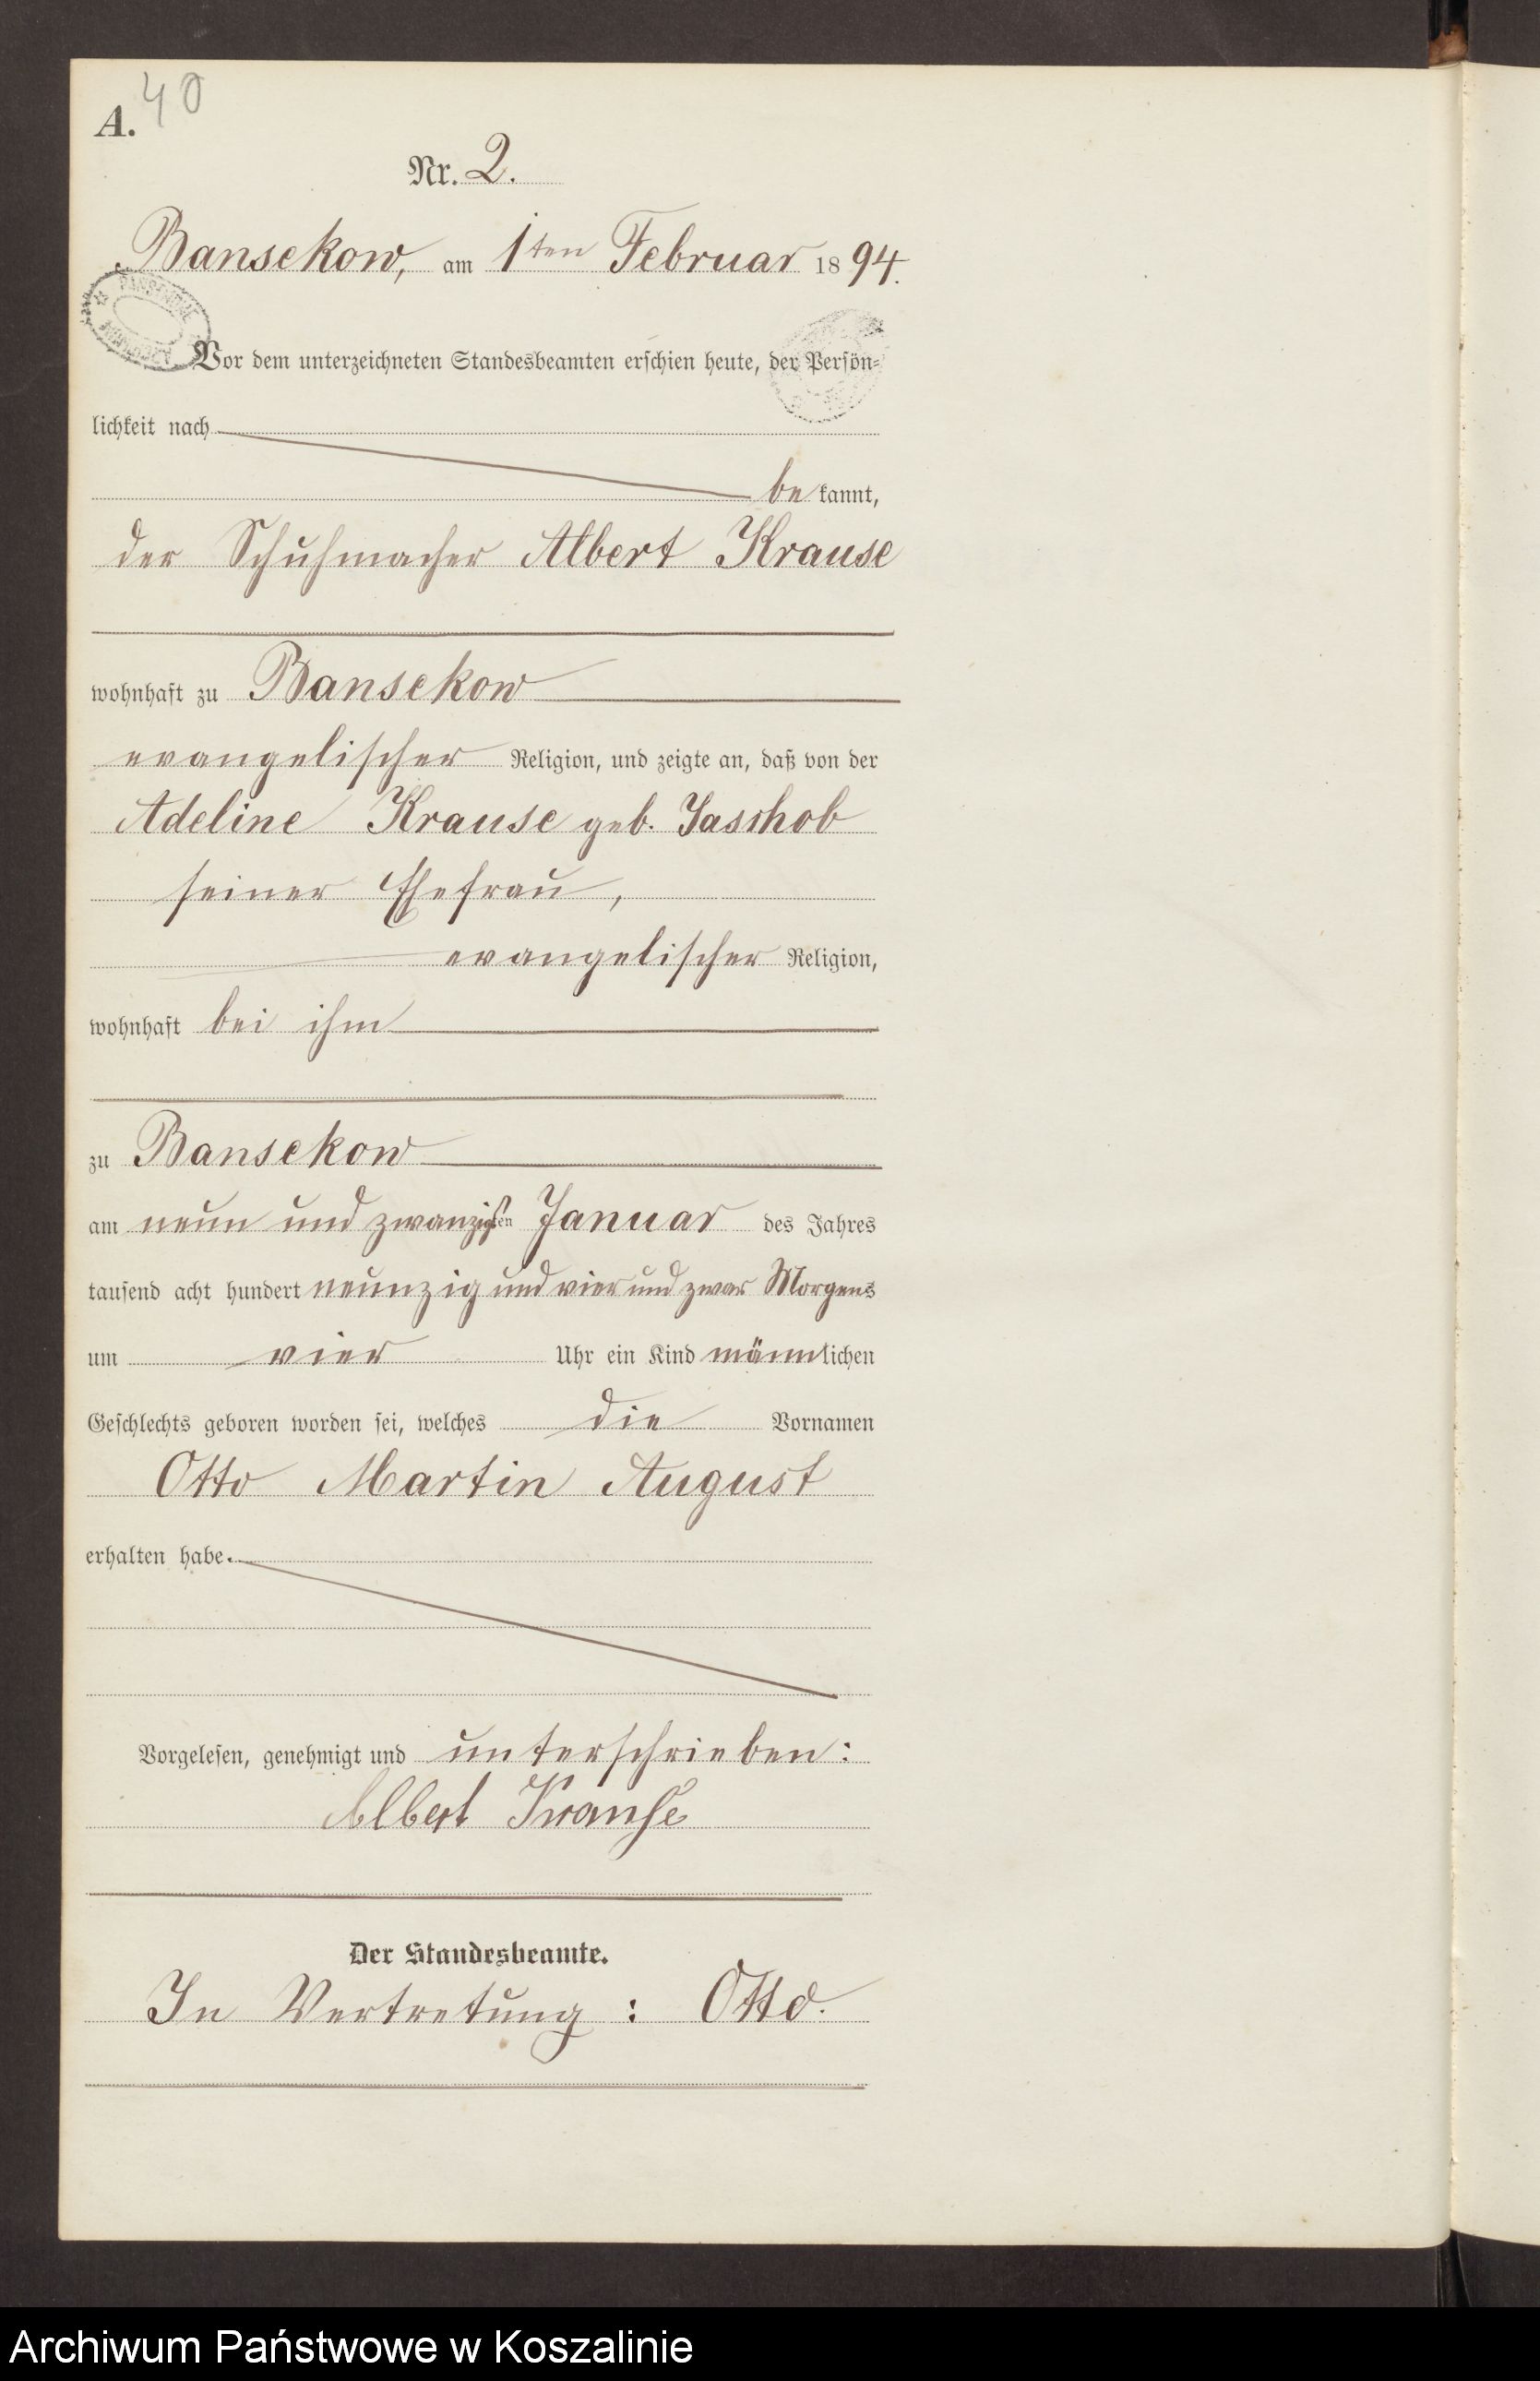 A. 40
Nr. 2.
Bansekow, am 1ten Februar 1894.
Vor dem unterzeichneten Standesbeamten erschien heute, der Persön-
lichkeit nach
bekannt,
der Schuhmacher Albert Krause
wohnhaft zu Bansekow
evangelischer Religion, und zeigte an, daß von der
Adeline Krause geb.
seiner Ehefrau,
evangelischer Religion,
wohnhaft bei ihm
zu Bansekow
am neun und zwanzigsten Januar des Jahres
tausend acht hundert neunzig und vier und zwar Morgens
um vier Uhr ein Kind männlichen
Geschlechts geboren worden sei, welches die Vornamen
Otto Martin August
erhalten habe.
Vorgelesen, genehmigt und unterschrieben:
Albert Krause
Der Standesbeamte.
In Vertretung: Otto.
Archiwum Państwowe w Koszalinie